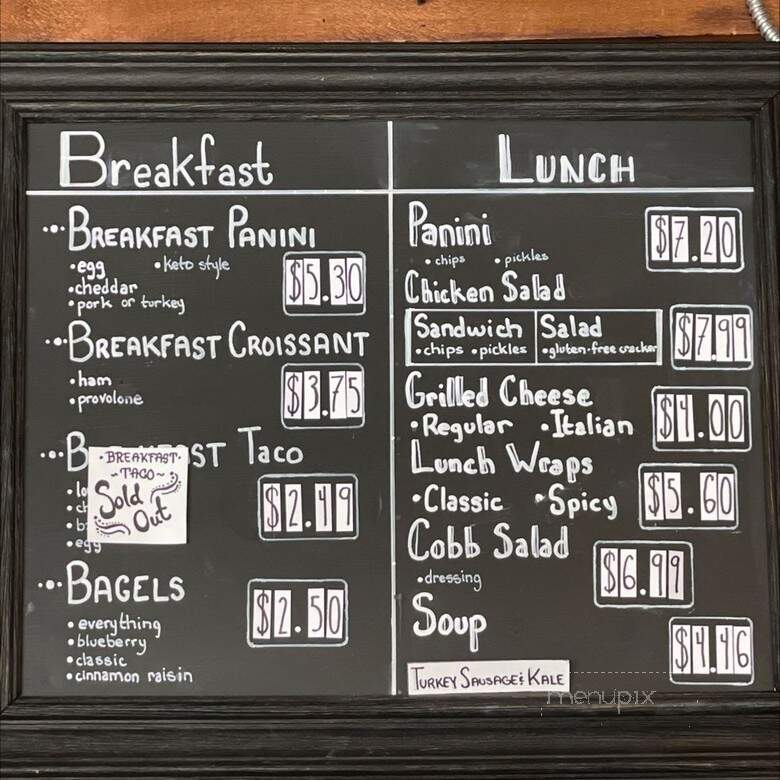 Breakfast
•••BREAKFAST PANINI
•egg •keto style
•cheddar
•pork or turkey
$5.30
•••BREAKFAST CROISSANT
•ham
•provolone
$3.75
Taco
•BREAKFAST•
~TACO~
Sold
Out
•egg
$2.49
•••BAGELS
•everything
•blueberry
•classic
•cinnamon raisin
$2.50
LUNCH
Panini
•chips •pickles
$7.20
Chicken Salad
Sandwich Salad
•chips •pickles •gluten-free cracker
$7.99
Grilled Cheese
•Regular •Italian
$4.00
Lunch Wraps
•Classic •Spicy
$5.60
Cobb Salad
•dressing
$6.99
Soup
TURKEY SAUSAGE & KALE
$4.46
menupix